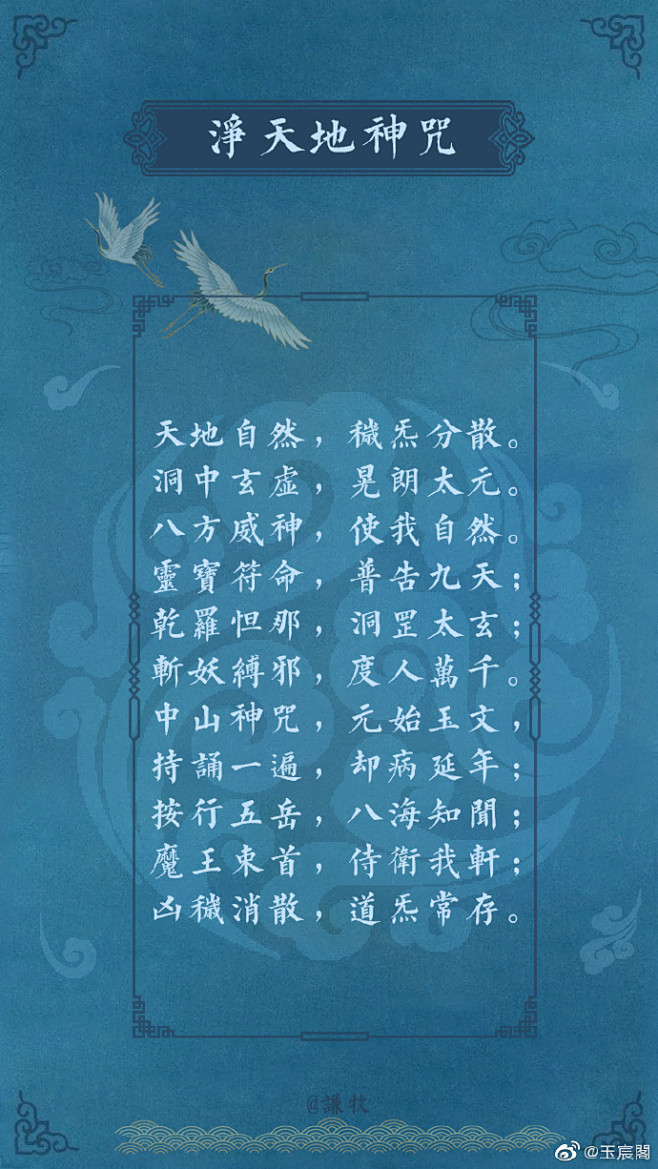 淨天地神咒
天地自然，穢炁分散。
洞中玄虛，晃朗太元。
八方威神，使我自然。
靈寶符命，普告九天；
乾羅怛那，洞罡太玄；
斬妖縛邪，度人萬千。
中山神咒，元始玉文，
持誦一遍，却病延年；
按行五岳，八海知聞；
魔王束首，侍衛我軒；
凶穢消散，道炁常存。
@謙牧
@玉宸閣